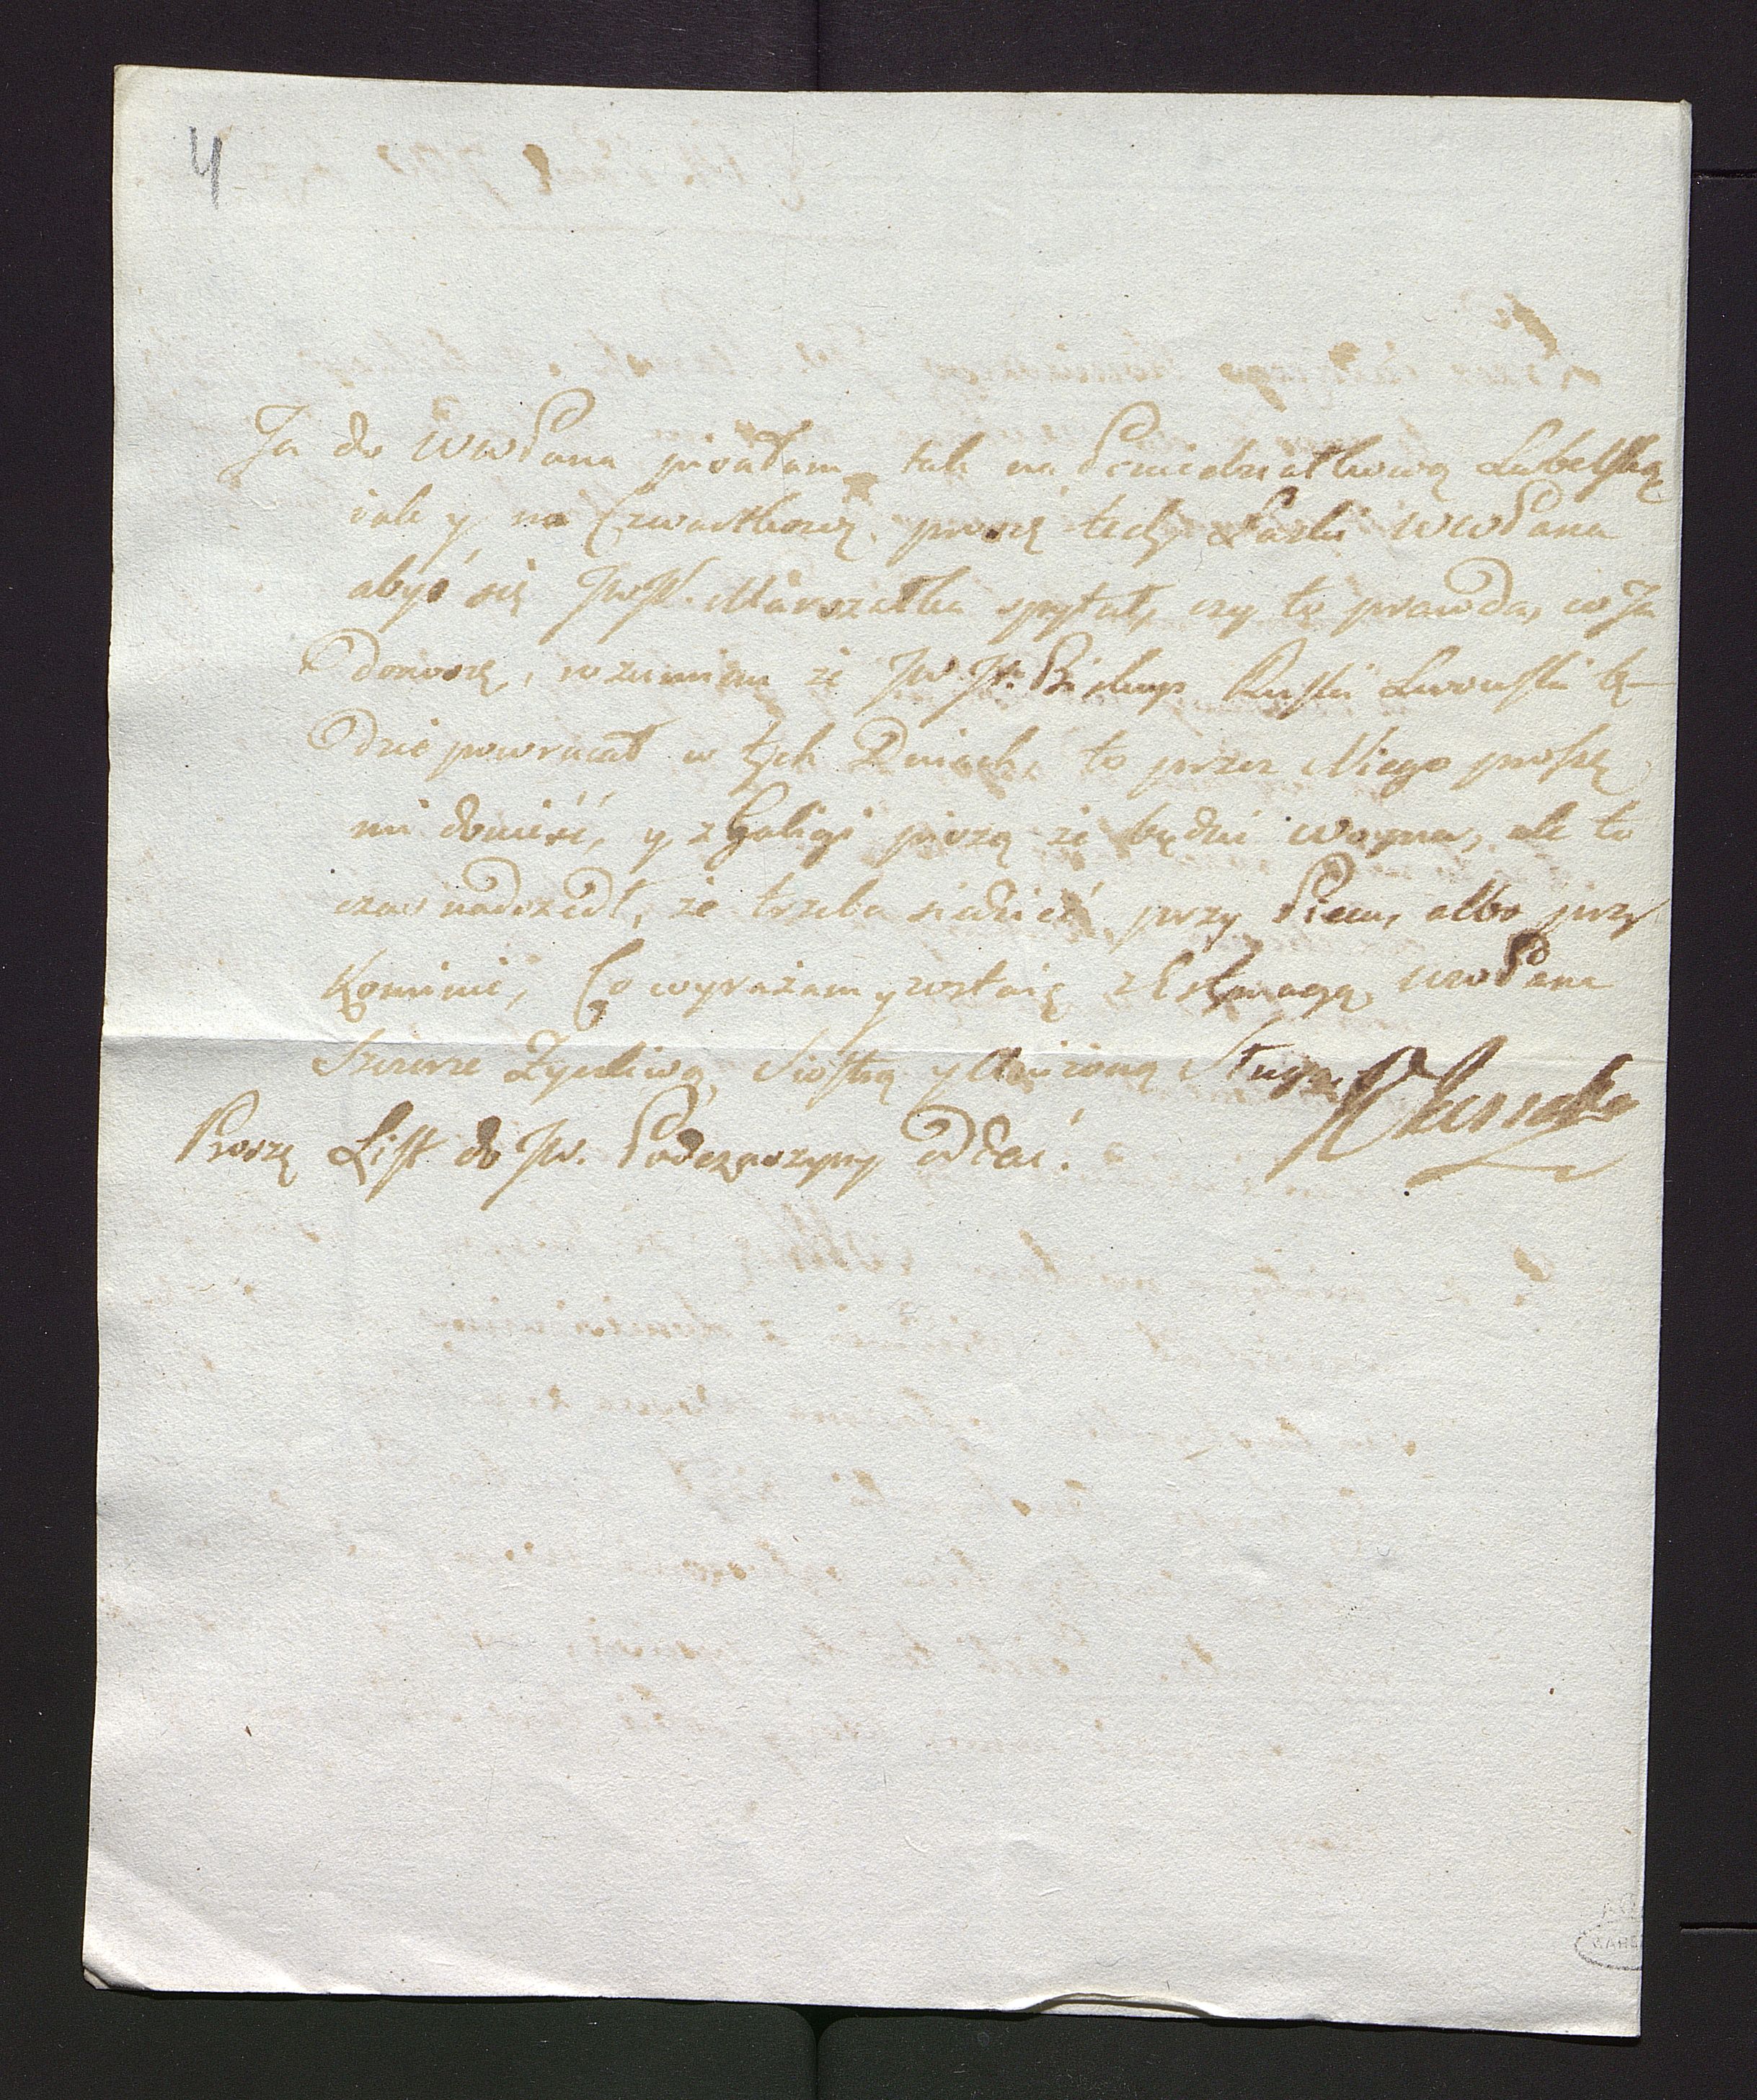 4
Ja do WWPana pisałam tak na Poniedziałkową Lubelską
iak y na Czwartkową. proszę tedy Łaski WWPana
abyś się JWP. Marszałka spytał, czy to prawda, co Ja
Donoszę, rozumiem że JW Jx. Biskup Ruski Lwowski bę-
dzie powracał w tych Dniach, to przez Niego proszę
mi donieść, y z Galigi piszą że będzie woyna, ale to
czas nadszedł, że trzeba siedzieć przy Piecu, albo przy
Kominie, Co wyrażam y zostaię z Estymacyą WWPana
Szczerze Życzliwą Siostrą y Uniżoną Sługą
Proszę List do JW. Podczaszyny oddać.